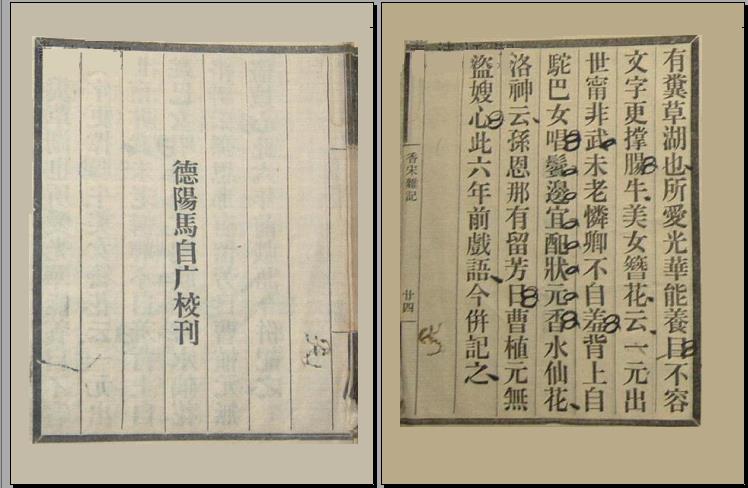 有糞草湖也所愛光華能養目不容
文字更撐腸牛美女簪花云一元出
世甯非武未老憐卿不自羞背上自
駝巴女唱鬢邊宜配狀元香水仙花
洛神云孫恩那有留芳日曹植元無
盜嫂心此六年前戲語今倂記之
香宋雜記
廿四
德陽馬自广校刊